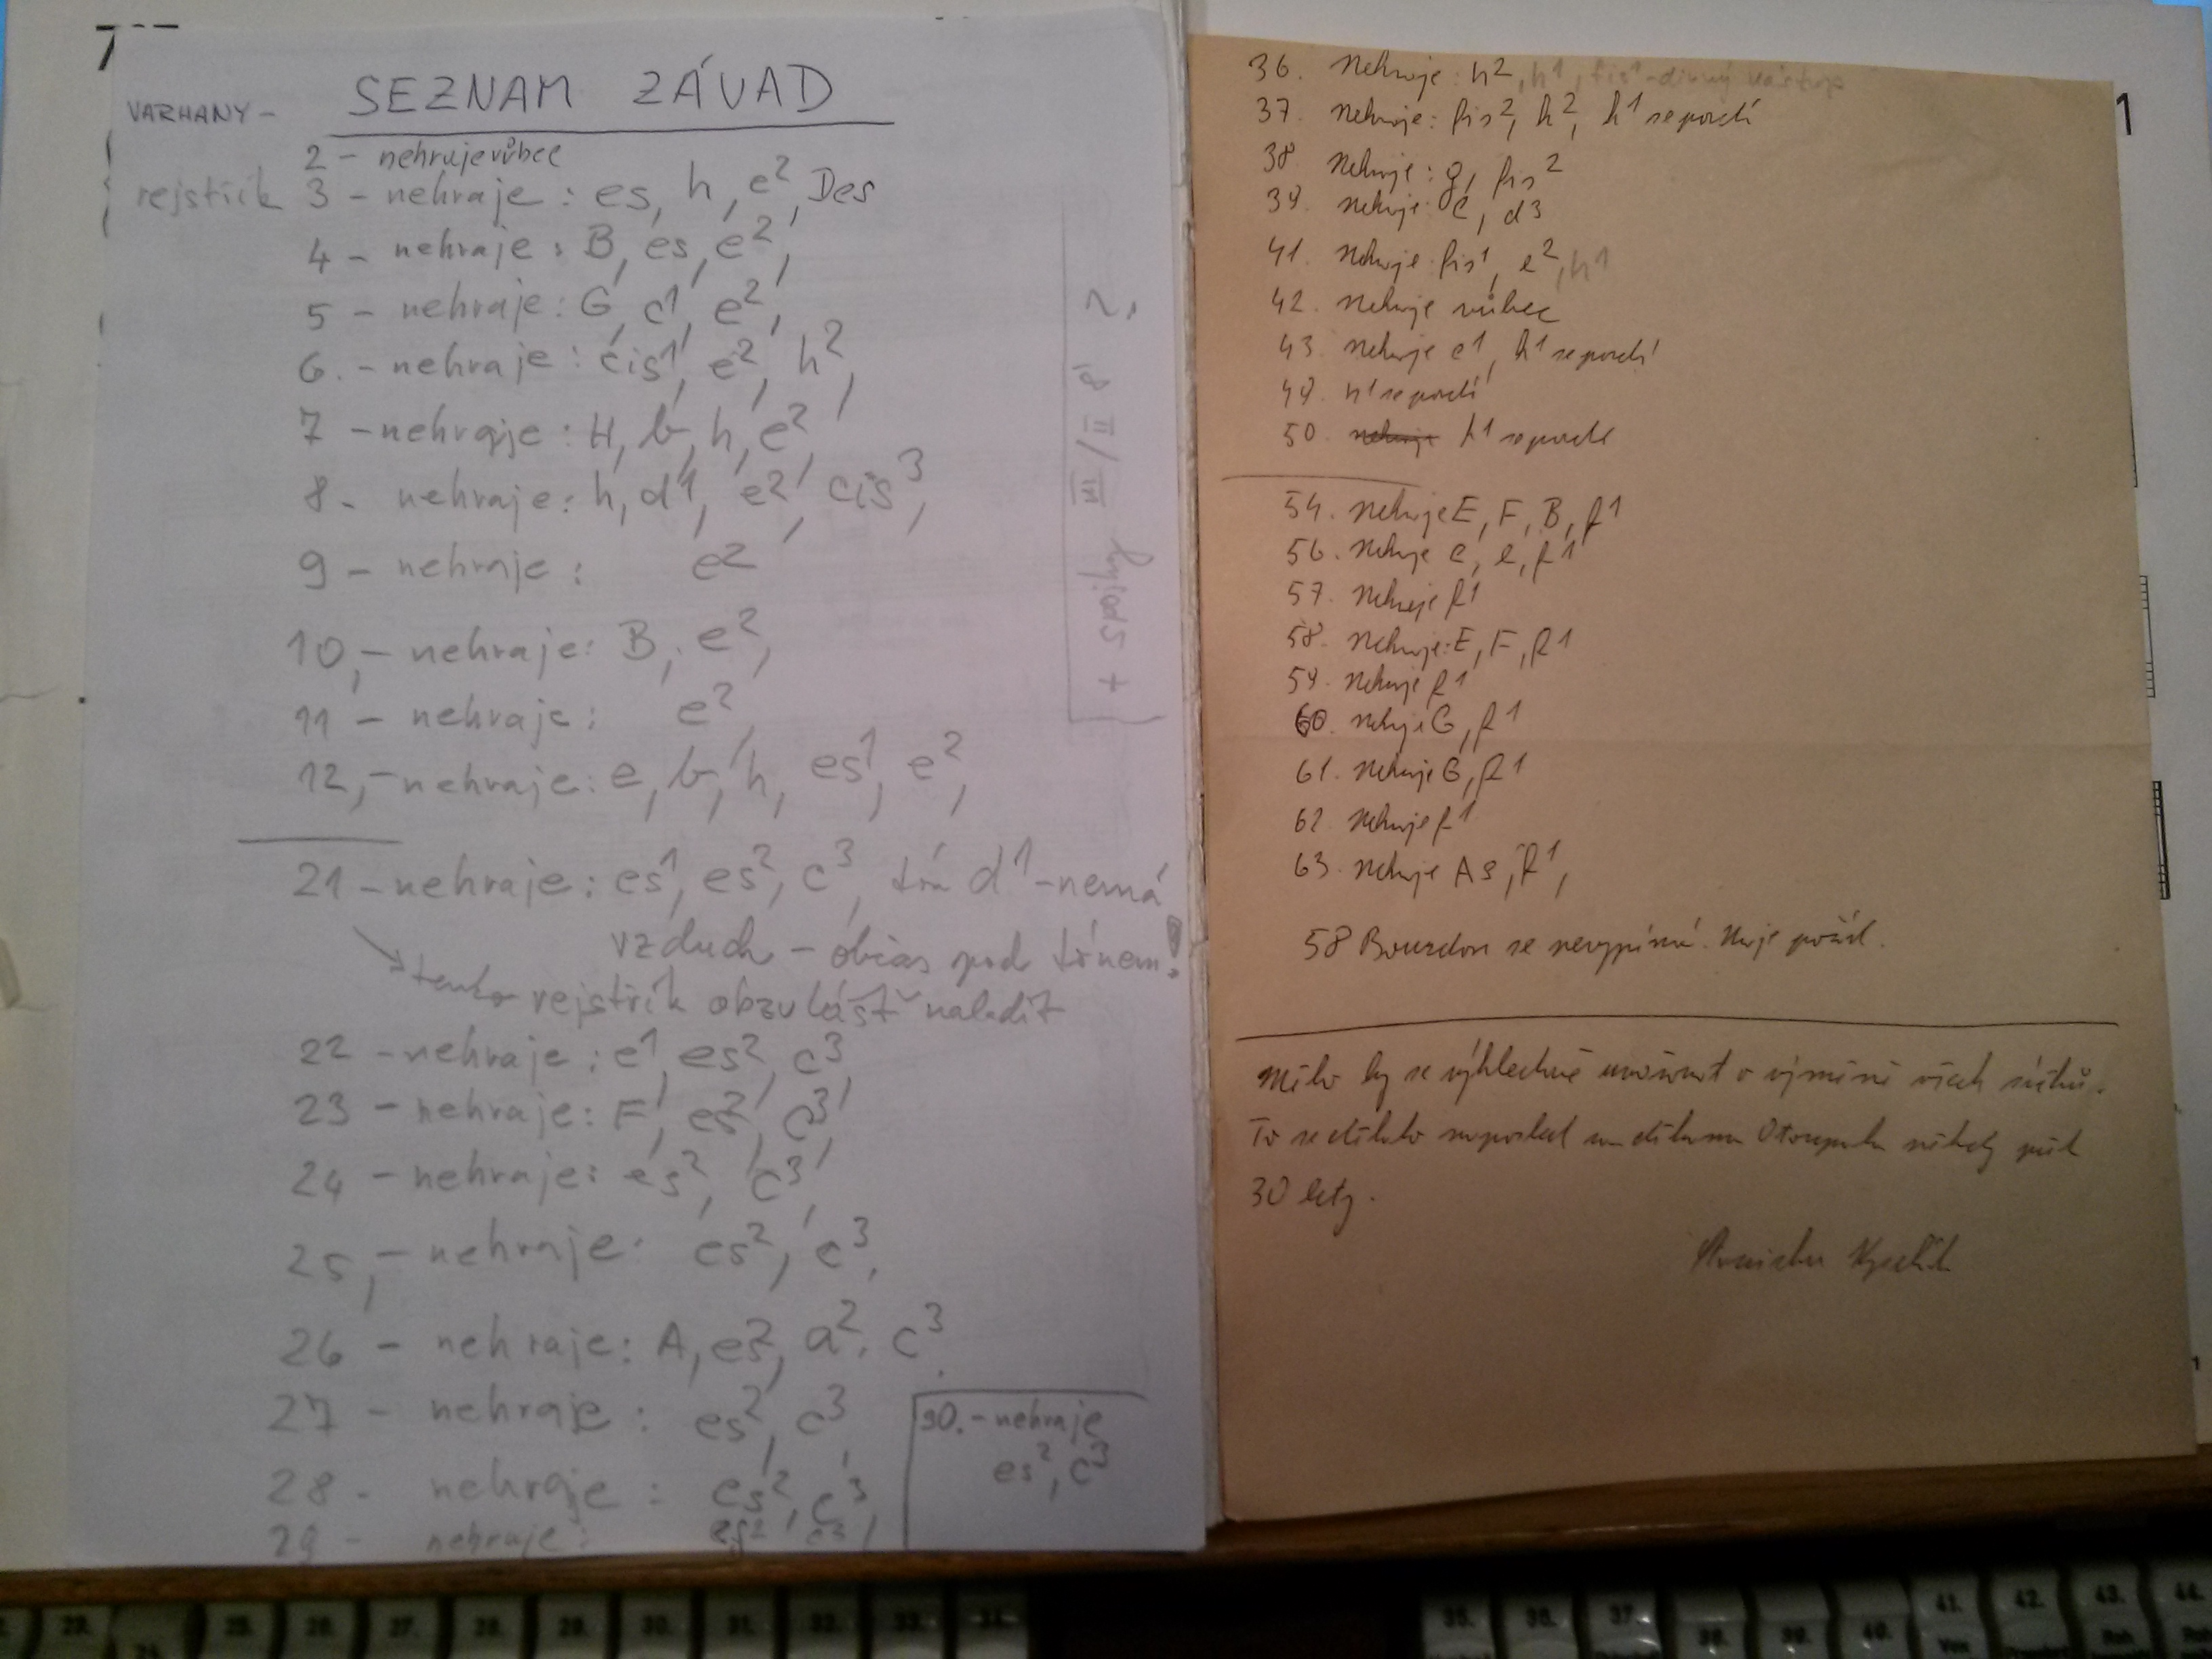 SEZNAM ZÁVAD
VARHANY -
2 - nehraje vůbec
rejstřík 3 - nehraje : es, h, e², Des
4 - nehraje : B, es, e²,
5 - nehraje : G, c¹, e²,
6. - nehraje : cis¹, e², h²,
7 - nehraje : H, b, h, e²,
8 - nehraje : h, d¹, e², cis³,
9 - nehraje : e²
10, - nehraje : B, e²,
11 - nehraje : e²,
12, - nehraje : e, b, h, es¹, e²,
21 - nehraje : es¹, es², c³, tón d¹ - nemá
vzduch - občas pod tónem!
tento rejstřík obzvlášť naladit
22 - nehraje : e¹, es², c³,
23 - nehraje : F, es², c³,
24 - nehraje : es², c³,
25, - nehraje : es², c³,
26 - nehraje : A, es², a², c³.
27 - nehraje : es², c³,
28 - nehraje : es², c³,
29 - nehraje : es², c³,
30. - nehraje
es², c³
+ spojky III/II 8'
2,
36. Nehraje : h², h¹, fis¹ - divný nástup
37. Nehraje : fis², h², h¹ se pozdí
38. Nehraje : g, fis²
39. Nehraje c, d³
41. Nehraje fis¹, e², h¹
42. Nehraje vůbec
43. Nehraje c¹, h¹ se pozdí
49. h¹ se pozdí
50. h¹ se pozdí
54. Nehraje E, F, B, f¹
56. Nehraje c, e, f¹
57. Nehraje f¹
58. Nehraje : E, F, f¹
59. Nehraje f¹
60. Nehraje G, f¹
61. Nehraje G, f¹
62. Nehraje f¹
63. Nehraje As, f¹,
58 Bourdon se nevypíná. Hraje pořád.
Mělo by se výhledově uvažovat o výměně všech
To se dělalo naposled za děkana Otoupala někdy před
30 lety.
23. 24. 25. 26. 27. 28. 29. 30. 31. 32. 33. 34.
35. 36. 37. 38. 39. 40. 41. 42. 43. 44.